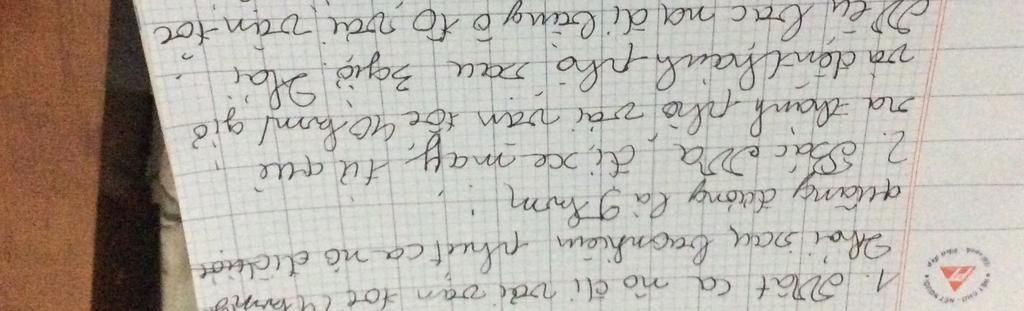 1. Một ca nô đi với vận tốc
Hỏi sau bao nhiêu phút ca nô đi được
quãng đường là 9 km,
2. Bác Na đi xe máy từ quê
ra thành phố với vận tốc 40 km/giờ
và đến thành phố sau 3 giờ. Hỏi
Nếu bác na đi bằng ô tô với vận tốc